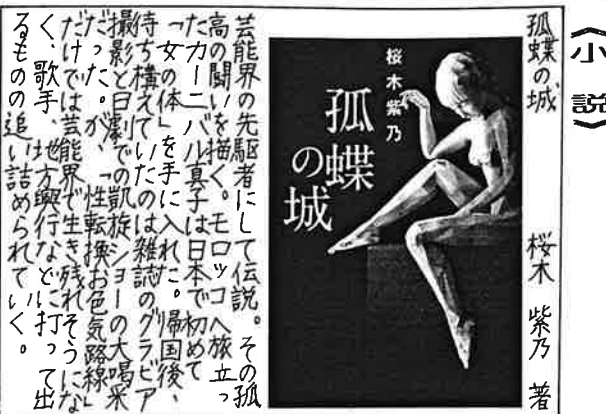 〈小説〉
孤蝶の城　桜木 紫乃 著
桜木紫乃
孤蝶
の城
芸能界の先駆者にして伝説。その孤
高の闘いを描く。モロッコへ旅立っ
たカーニバル真子は日本で初めて
「女の体」を手に入れた。帰国後、
待ち構えていたのは雑誌のグラビア
撮影と日劇での凱旋ショーの大喝采
だった。が、「性転換お色気路線」
だけでは芸能界で生き残れそうにな
く、歌手、地方興行などに打って出
るものの追い詰められていく。